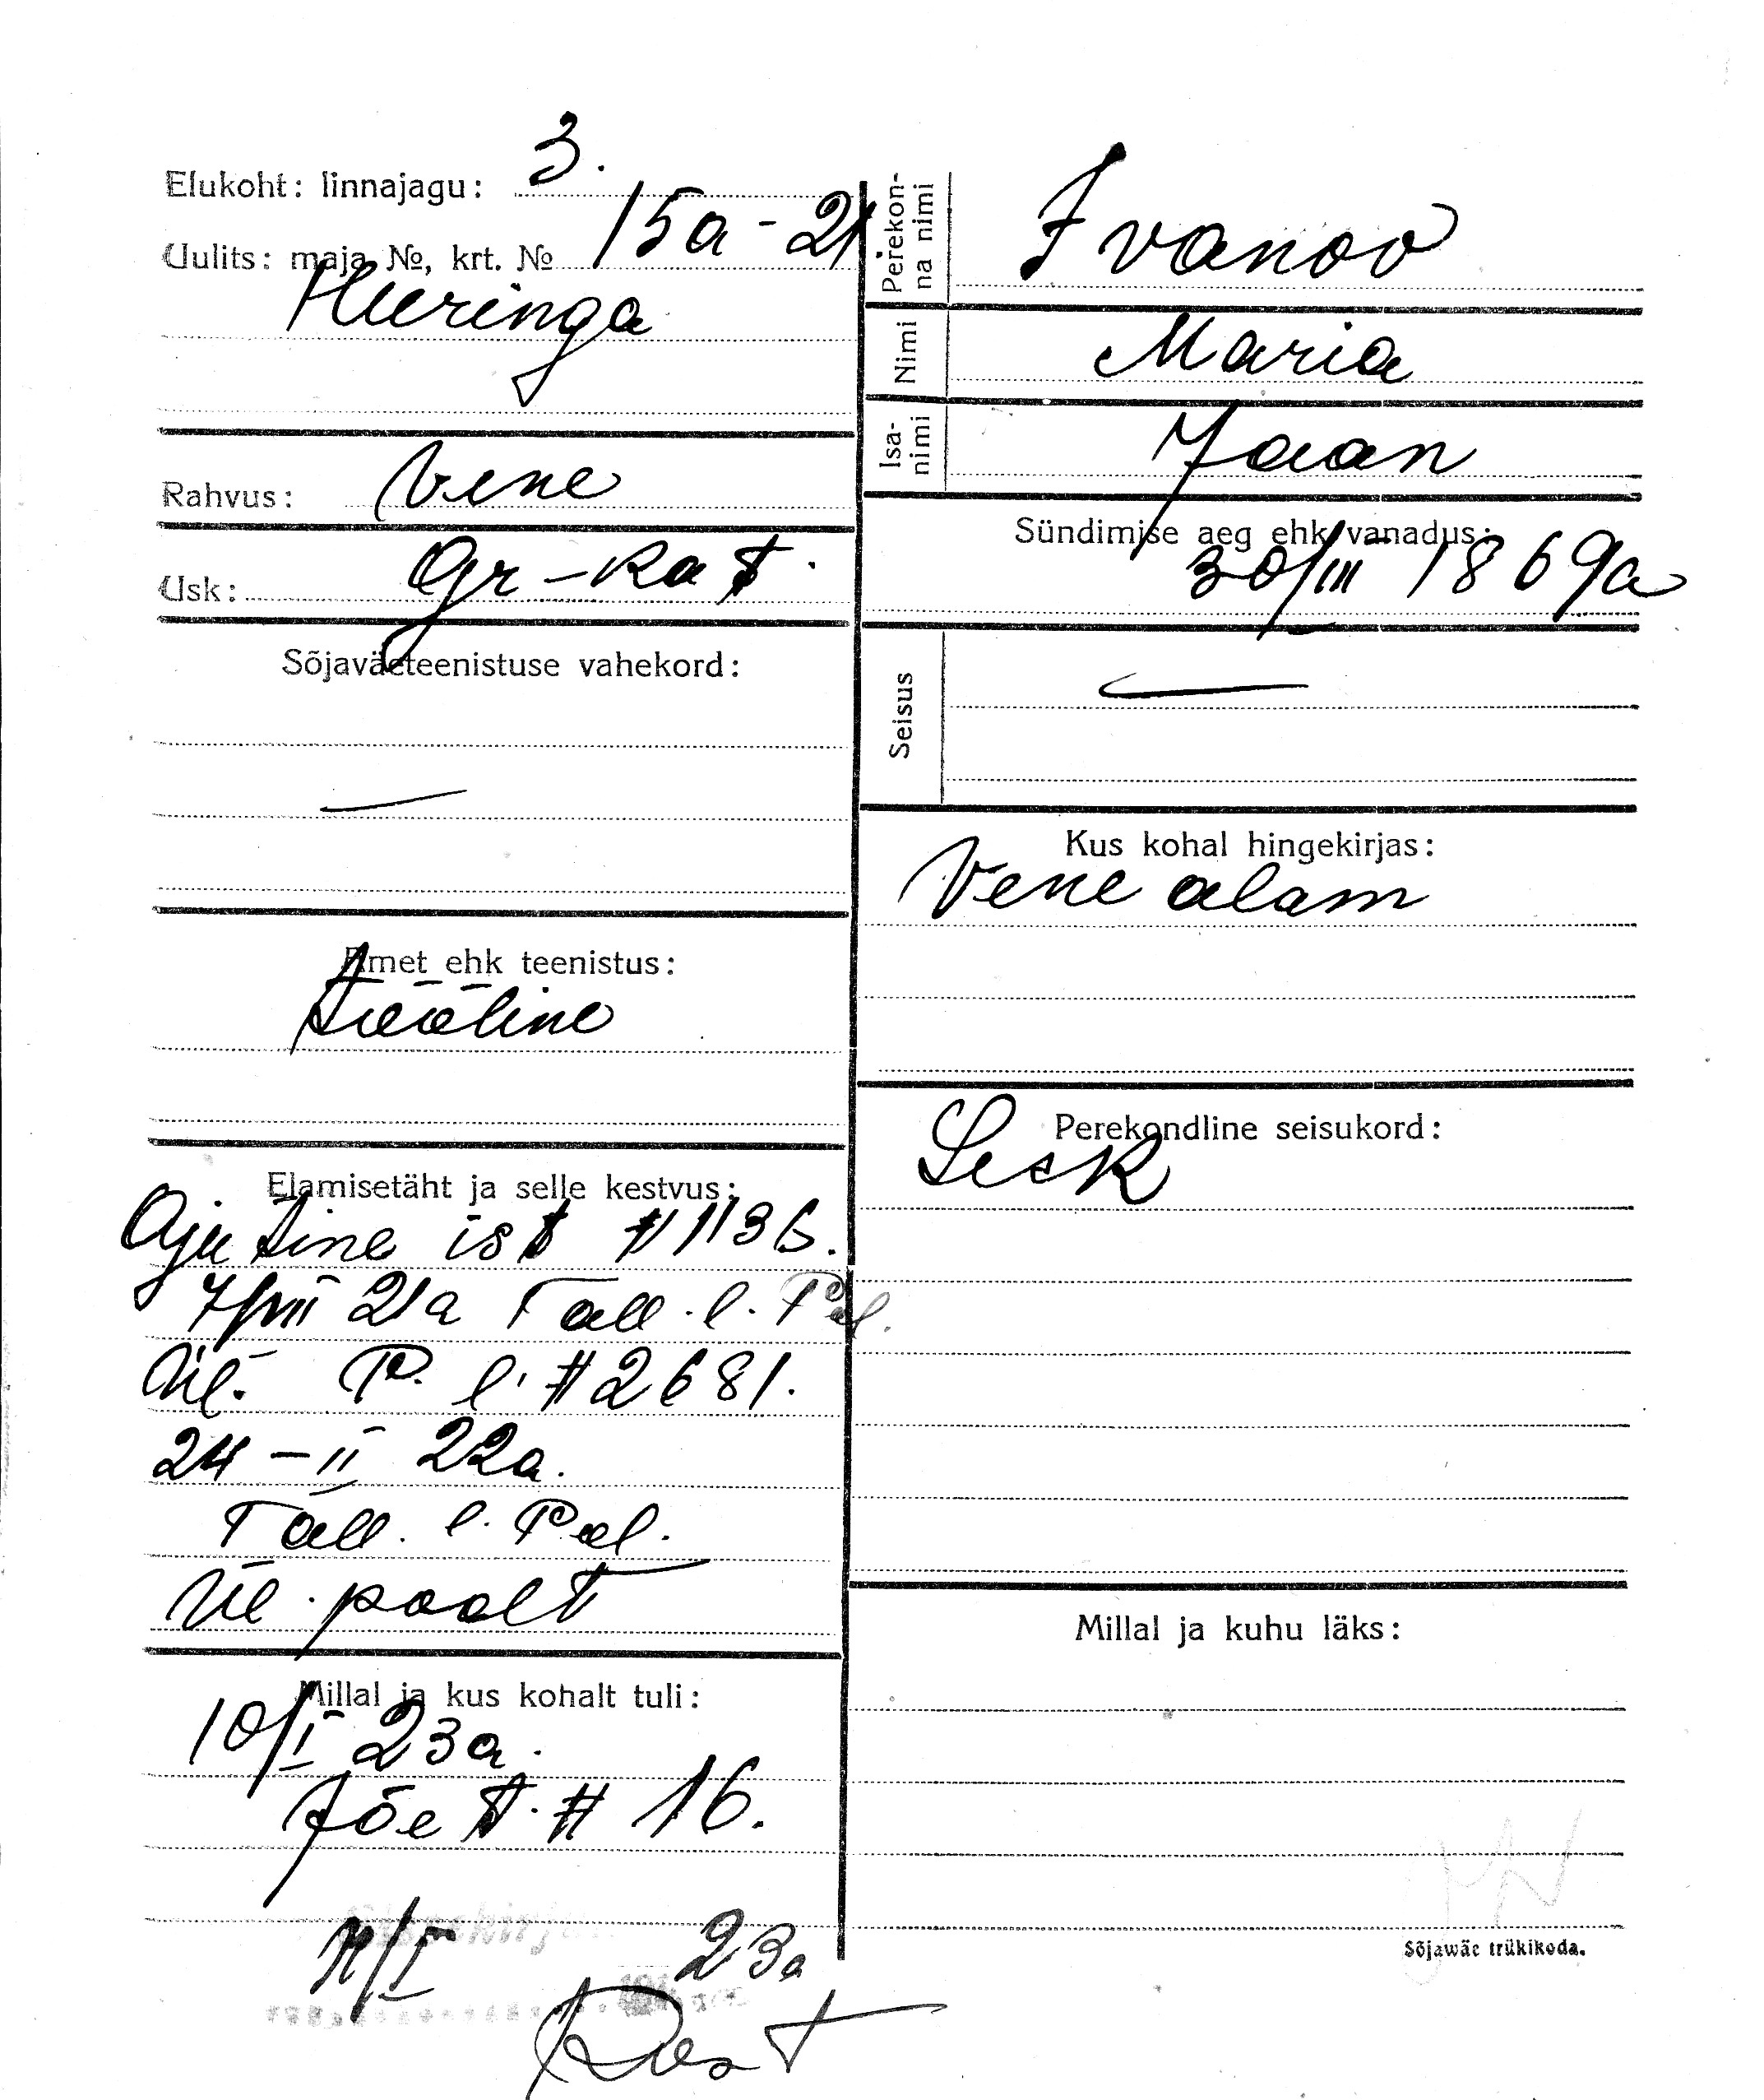 Elukoht: linnajagu: 3.
Uulits: maja №, krt. № 15a - 21
Heeringa
Rahvus: Vene
Usk: Gr - kat.
Sõjaväeteenistuse vahekord:
—
Amet ehk teenistus:
Tööline
Elamisetäht ja selle kestvus:
Ajutine ist # 1136.
7/VII 21a Tall. l. Pol.
Ül. P. l. # 2681.
24 - II 22a.
Tall. l. Pol.
Ül. poolt
Millal ja kus kohalt tuli:
10/I 23a.
Jõe t. # 16.
/I 23a
Perekonna nimi
Ivanov
Nimi
Maria
Isanimi
Jaan
Sündimise aeg ehk vanadus:
30/III 1869a
Seisus
—
Kus kohal hingekirjas:
Vene alam
Perekondline seisukord:
Lesk
Millal ja kuhu läks:
Sõjawäe trükikoda.